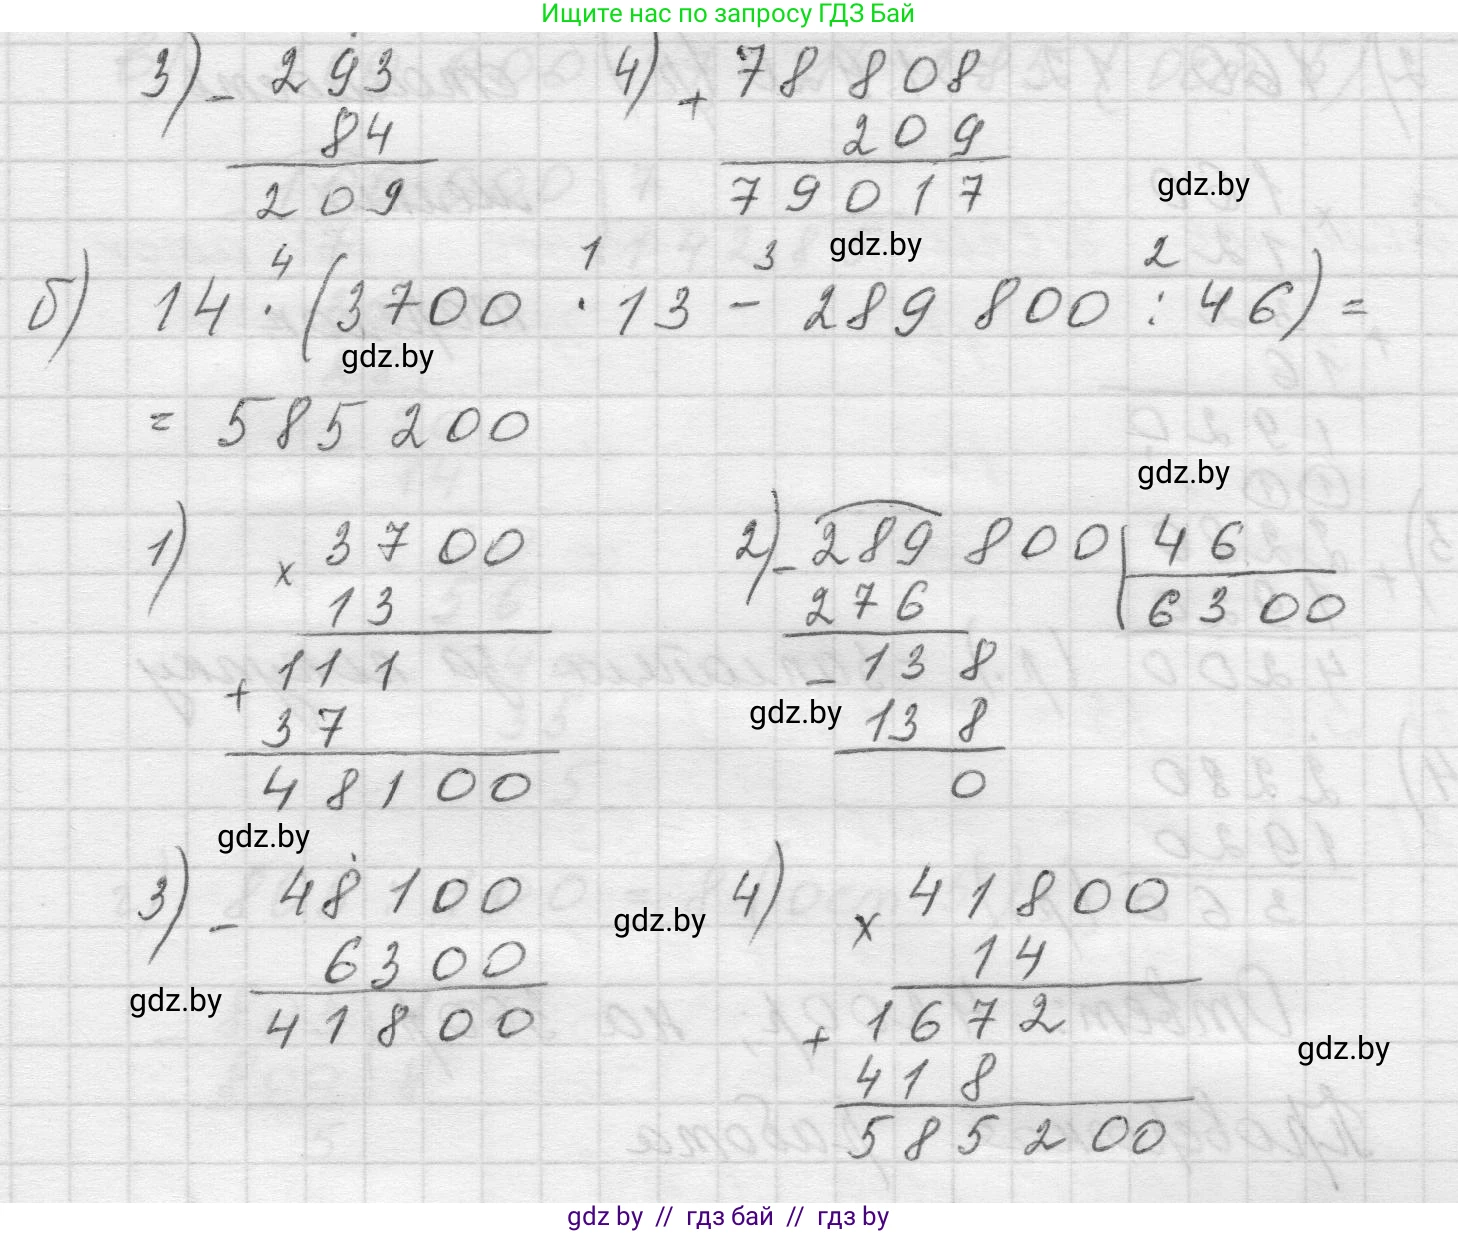 Ищите нас по запросу ГДЗ Бай
3) - 293
84
209
4) + 78 808
209
79017
gdz.by
gdz.by
4 1 3 2
б) 14 · (3700 · 13 - 289 800 : 46) =
gdz.by
= 585 200
gdz.by
1) x 3700
13
+ 111
37
48100
2) - 289 800 46
276 6300
- 138
138
0
gdz.by
gdz.by
3) - 48100
6300
41800
gdz.by
gdz.by
4) x 41800
14
+ 1672
418
585200
gdz.by
gdz by // гдз бай // гдз by